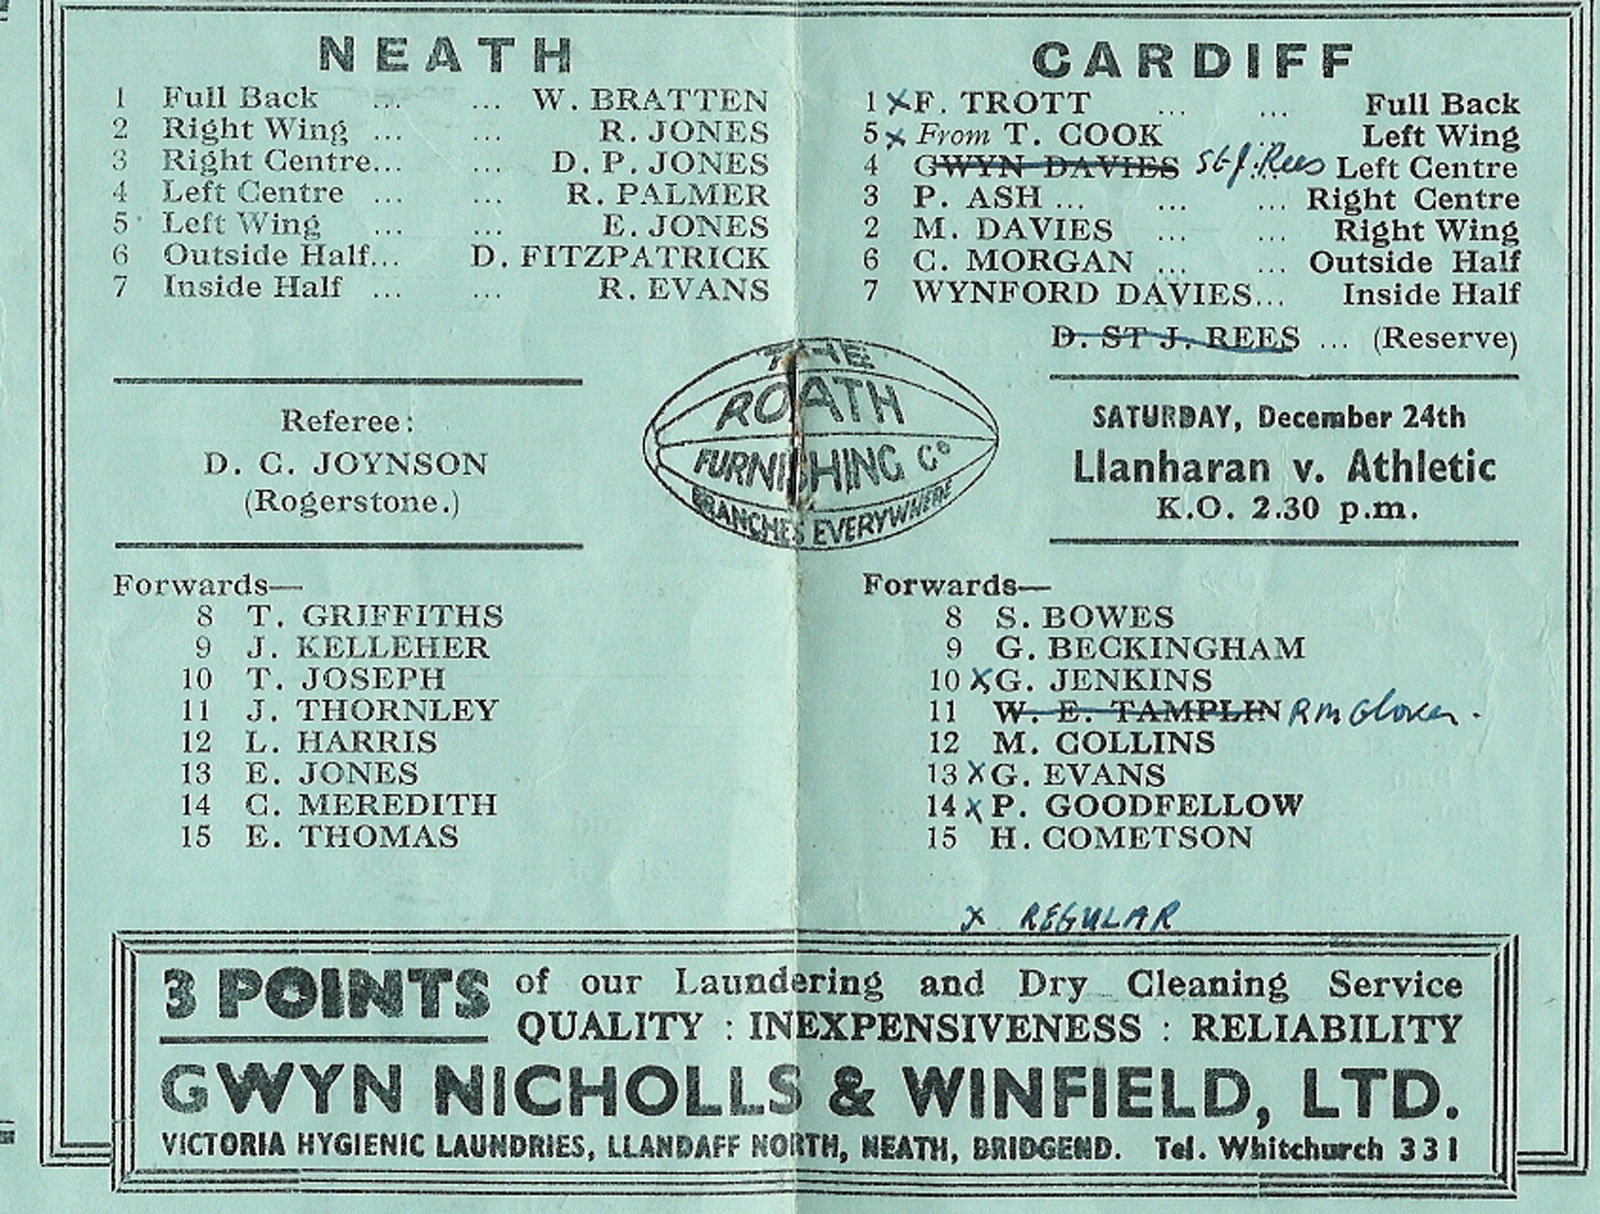 NEATH
1 Full Back ... ... W. BRATTEN
2 Right Wing ... ... R. JONES
3 Right Centre... ... D. P. JONES
4 Left Centre ... ... R. PALMER
5 Left Wing ... ... E. JONES
6 Outside Half... D. FITZPATRICK
7 Inside Half ... ... R. EVANS
Referee:
D. C. JOYNSON
(Rogerstone.)
Forwards—
8 T. GRIFFITHS
9 J. KELLEHER
10 T. JOSEPH
11 J. THORNLEY
12 L. HARRIS
13 E. JONES
14 C. MEREDITH
15 E. THOMAS
THE
ROATH
FURNISHING Co
BRANCHES EVERYWHERE
CARDIFF
1 x F. TROTT ... ... Full Back
5 x From T. COOK Left Wing
4 GWYN DAVIES St J. Rees Left Centre
3 P. ASH ... ... ... Right Centre
2 M. DAVIES ... ... Right Wing
6 C. MORGAN ... ... Outside Half
7 WYNFORD DAVIES... Inside Half
D. ST J. REES ... (Reserve)
SATURDAY, December 24th
Llanharan v. Athletic
K.O. 2.30 p.m.
Forwards—
8 S. BOWES
9 G. BECKINGHAM
10 x G. JENKINS
11 W. E. TAMPLIN R M Glover.
12 M. COLLINS
13 x G. EVANS
14 x P. GOODFELLOW
15 H. COMETSON
x REGULAR
3 POINTS of our Laundering and Dry Cleaning Service
QUALITY : INEXPENSIVENESS : RELIABILITY
GWYN NICHOLLS & WINFIELD, LTD.
VICTORIA HYGIENIC LAUNDRIES, LLANDAFF NORTH, NEATH, BRIDGEND. Tel. Whitchurch 331